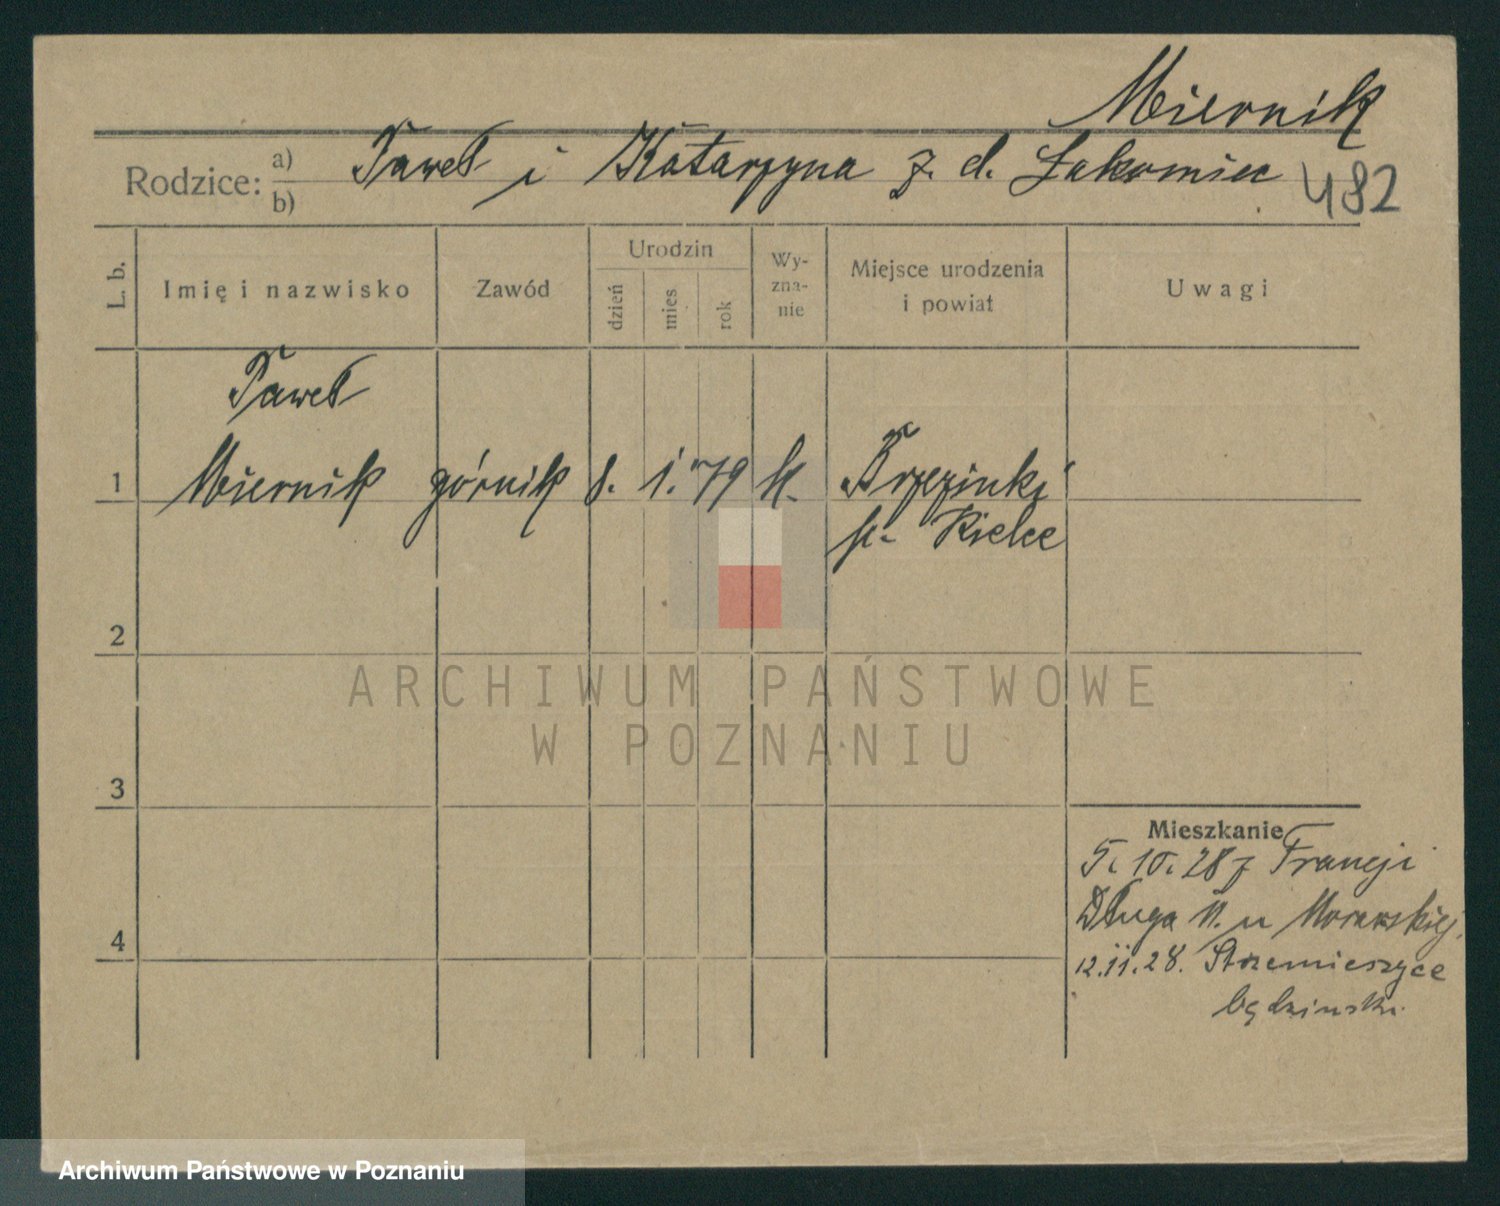 Miernik
Rodzice: a) b) Paweł i Katarzyna z. d. Łakomiec 482
L. b. Imię i nazwisko Zawód Urodzin dzień mies rok Wy-zna-nie Miejsce urodzenia i powiat Uwagi
Paweł
1 Miernik górnik 8. 1. 79 k. Brzezinki
p. Kielce
2
ARCHIWUM PAŃSTWOWE
W POZNANIU
3
Mieszkanie
5. 10. 28 z Francji
Długa 11. u Morawskiej.
4
12.11.28. Strzemieszyce
będzinski.
Archiwum Państwowe w Poznaniu